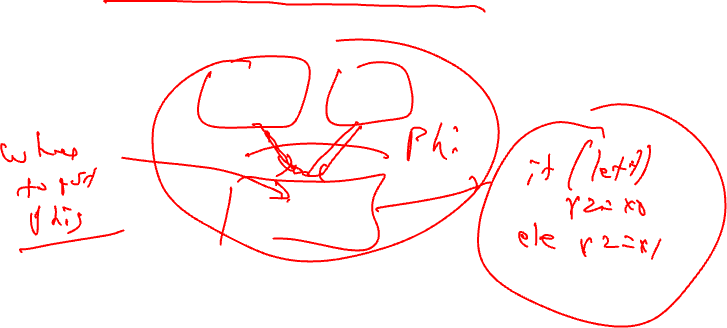 where
to put
phis
Phi
if (left)
x2=x0
else x2=x1